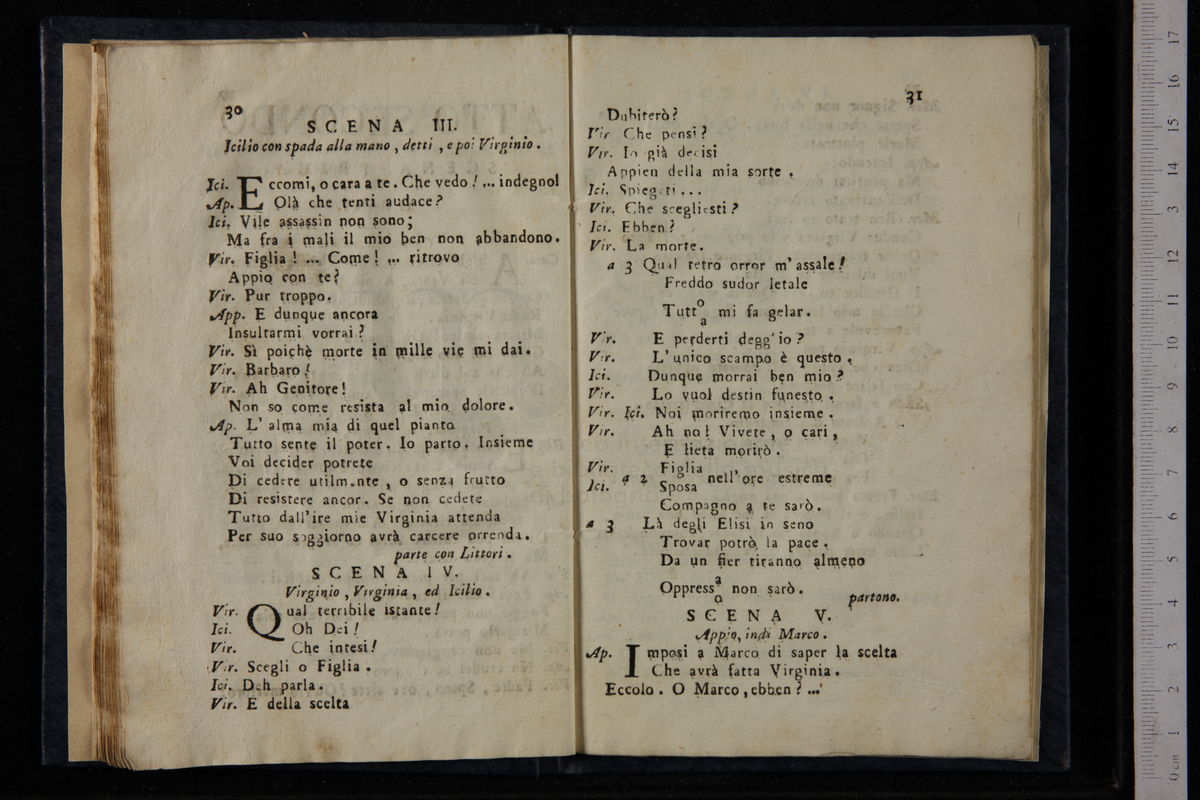 30
SCENA III.
Icilio con spada alla mano, detti, e poi Virginio.
Ici. Eccomi, o cara a te. Che vedo! ... indegnol
Ap. Olà che tenti audace?
Ici. Vile assassin non sono;
Ma fra i mali il mio ben non abbandono.
Vir. Figlia! ... Come! ... ritrovo
Appio con te?
Vir. Pur troppo.
App. E dunque ancora
Insultarmi vorrai?
Vir. Sì poichè morte in mille vie mi dai.
Vir. Barbaro!
Vir. Ah Genitore!
Non so come resista al mio dolore.
Ap. L'alma mia di quel pianto
Tutto sente il poter. Io parto. Insieme
Voi decider potrete
Di cedere utilm.nte, o senza frutto
Di resistere ancor. Se non cedete
Tutto dall'ire mie Virginia attenda
Per suo soggiorno avrà carcere orrenda.
parte con Littori.
SCENA IV.
Virginio, Virginia, ed Icilio.
Vir. Qual terribile istante!
Ici. Oh Dei!
Vir. Che intesi!
Vir. Scegli o Figlia.
Ici. Deh parla.
Vir. E della scelta
31
Dubiterò?
Vir Che pensi?
Vir. Io già decisi
Appien della mia sorte.
Ici. Spiegati...
Vir. Che scegliesti?
Ici. Ebben?
Vir. La morte.
a 3 Qual tetro orror m'assale!
Freddo sudor letale
Tutt o/a mi fa gelar.
Vir. E perderti degg'io?
Vir. L'unico scampo è questo.
Ici. Dunque morrai ben mio?
Vir. Lo vuol destin funesto.
Vir. Ici. Noi moriremo insieme.
Vir. Ah no! Vivete, o cari,
E lieta morirò.
Vir. Figlia
a 2 nell'ore estreme
Ici. Sposa
Compagno a te sarò.
a 3 Là degli Elisi in seno
Trovar potrò la pace.
Da un fier tiranno almeno
Oppress a/o non sarò.
partono.
SCENA V.
Appio, indi Marco.
Ap. Imposi a Marco di saper la scelta
Che avrà fatta Virginia.
Eccolo. O Marco, ebben? ...
17
16
15
14
13
12
11
10
9
8
7
6
5
4
3
2
1
0 cm